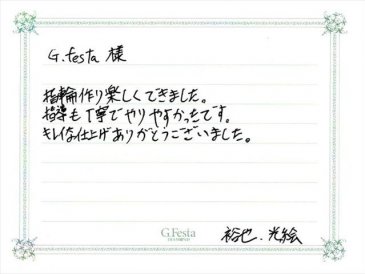 G.festa 様
指輪作り楽しくできました。
指導も丁寧でやりやすかったです。
キレイな仕上げありがとうございました。
G.Festa
DIAMOND
裕也.光絵